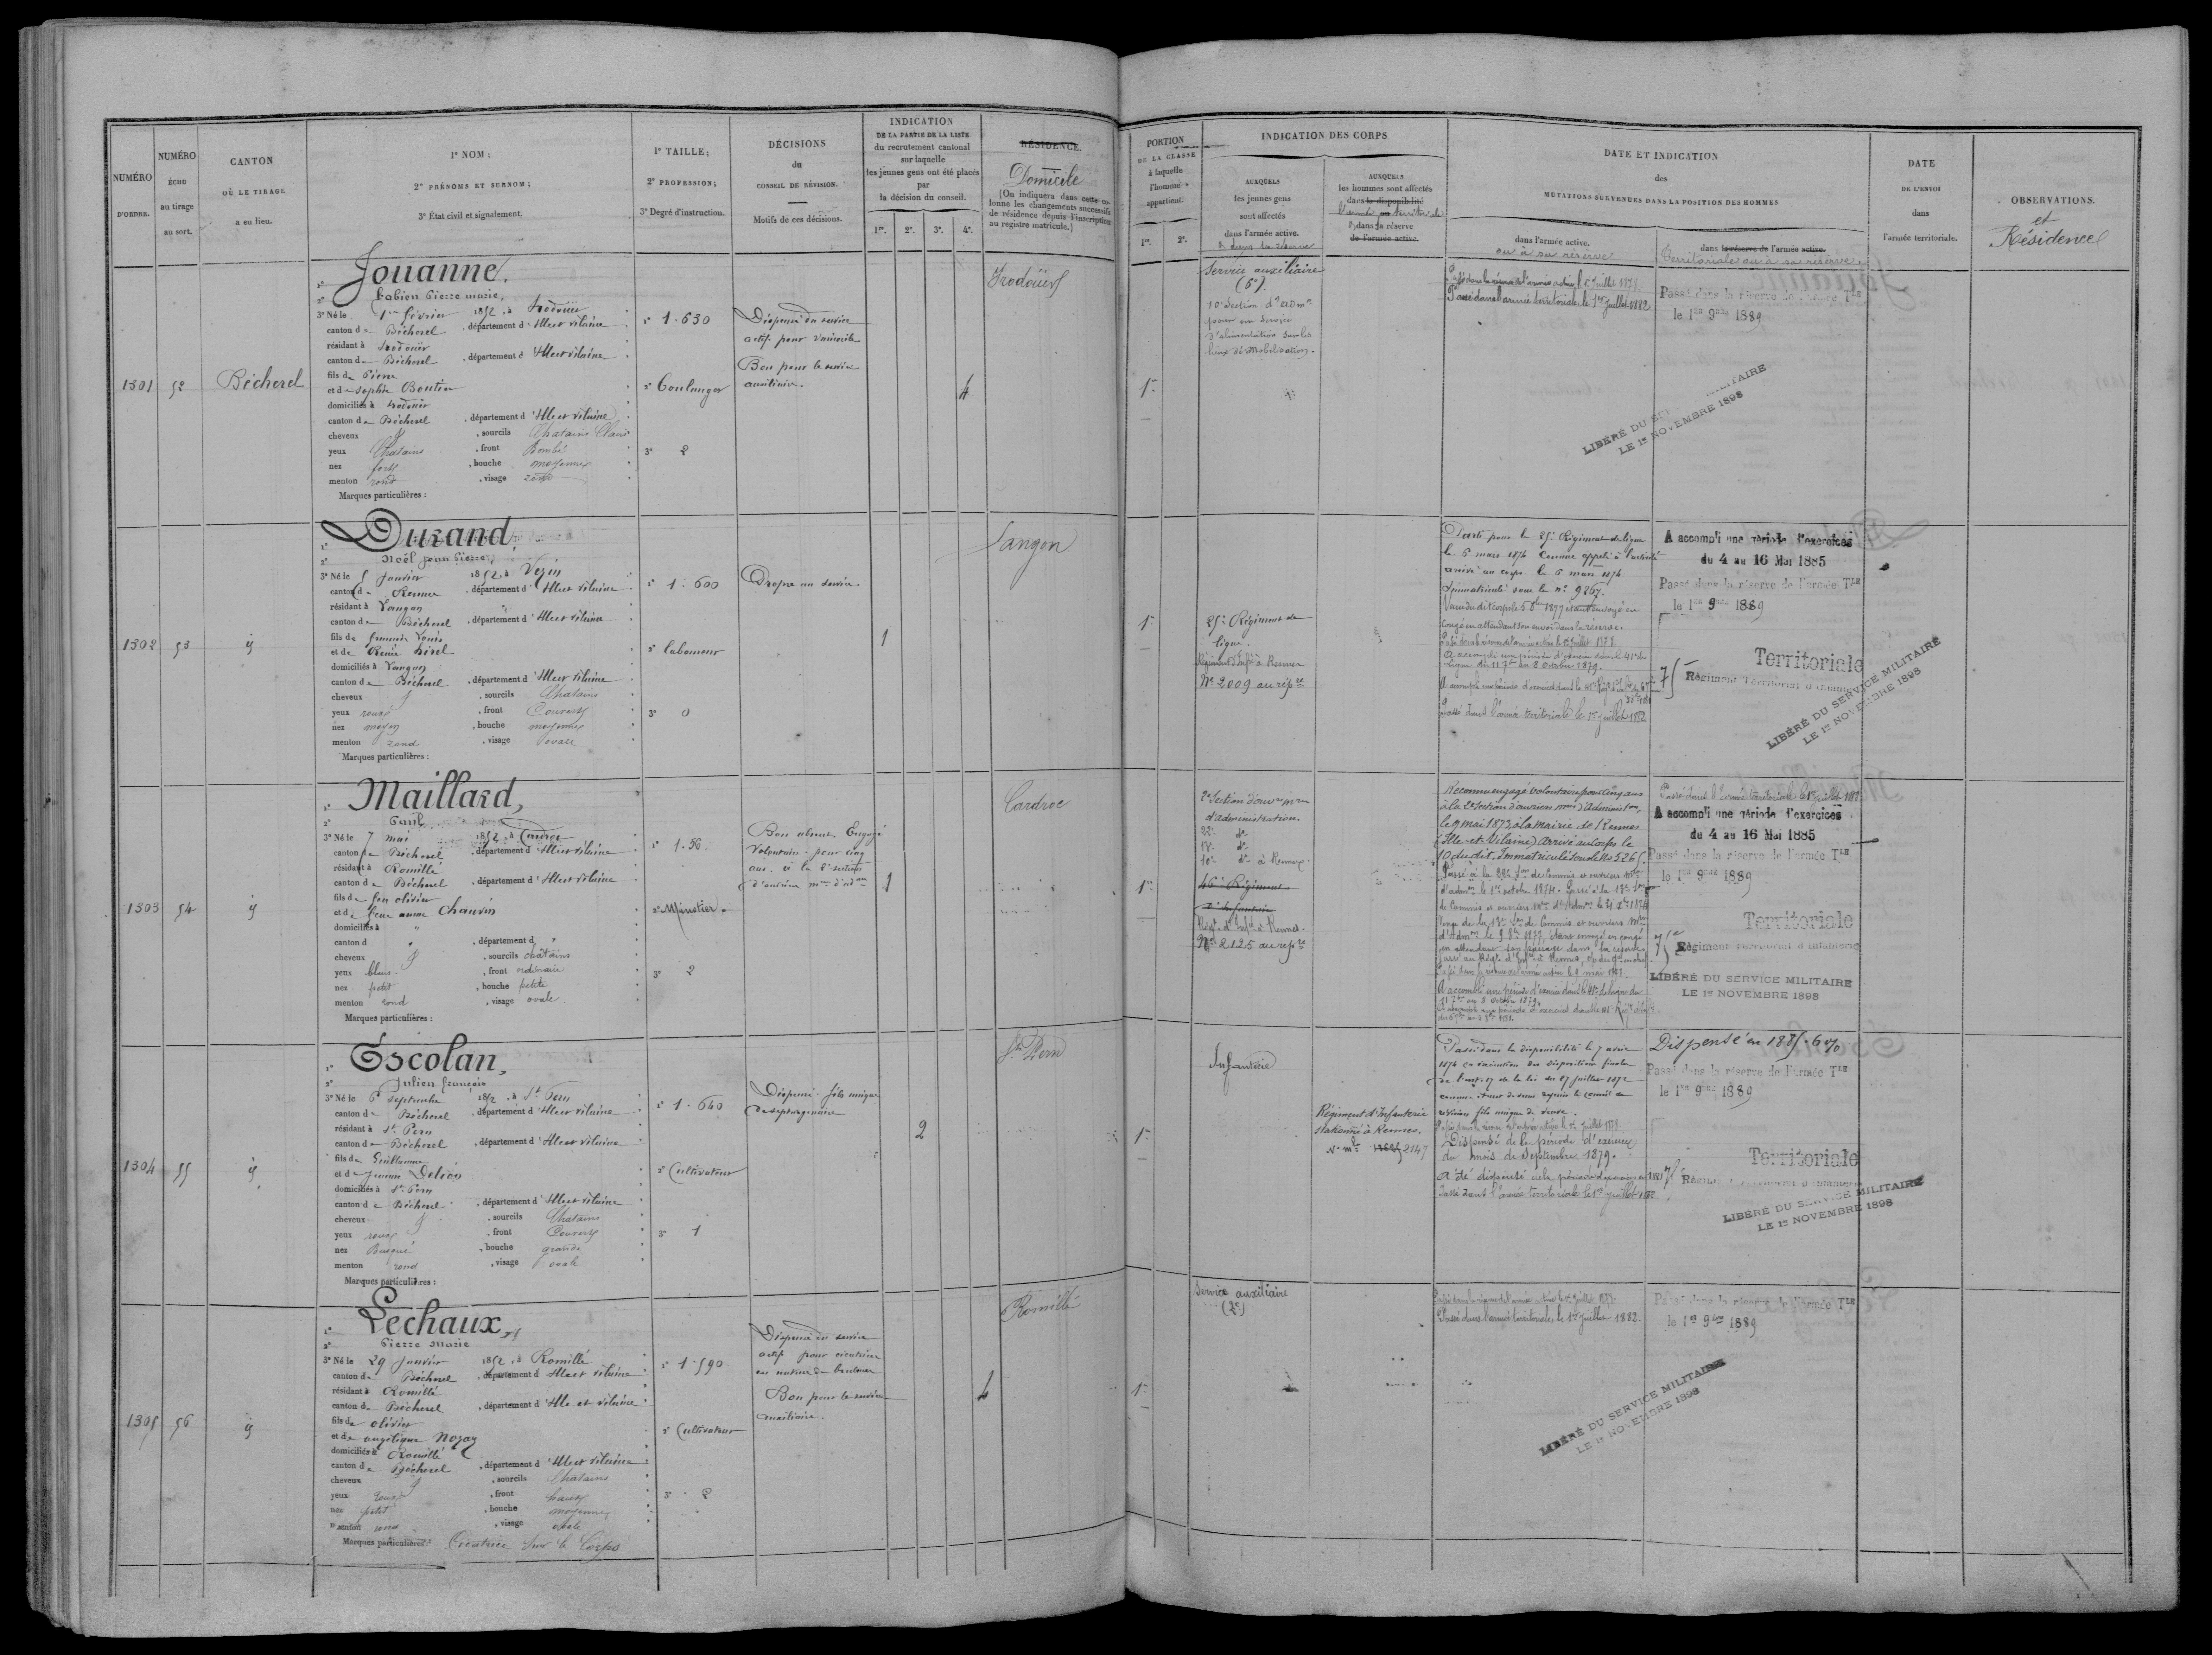 NUMÉRO
D'ORDRE.
NUMÉRO
ÉCHU
au tirage
au sort.
CANTON
OÙ LE TIRAGE
a eu lieu.
1° NOM;
2° PRÉNOMS ET SURNOM;
3° État civil et signalement.
1° TAILLE;
2° PROFESSION;
3° Degré d'instruction.
DÉCISIONS
du
CONSEIL DE RÉVISION.
Motifs de ces décisions.
INDICATION
DE LA PARTIE DE LA LISTE
du recrutement cantonal
sur laquelle
les jeunes gens ont été placés
par
la décision du conseil.
1re. 2e. 3e. 4e.
RÉSIDENCE.
Domicile
(On indiquera dans cette colonne les changements successifs
de résidence depuis l'inscription
au registre matricule.)
PORTION
DE LA CLASSE
à laquelle
l'homme
appartient.
1re. 2e.
INDICATION DES CORPS
AUXQUELS
les jeunes gens
sont affectés
dans l'armée active.
& dans la réserve
AUXQUELS
les hommes sont affectés
dans la disponibilité
dans la réserve
de l'armée active.
DATE ET INDICATION
des
MUTATIONS SURVENUES DANS LA POSITION DES HOMMES
dans l'armée active.
ou à sa réserve
dans la réserve de l'armée active.
Territoriale ou à sa réserve
DATE
DE L'ENVOI
dans
l'armée territoriale.
OBSERVATIONS.
et
Résidence
1301
52
Bécherel
1° Jouanne,
2° Fabien Pierre marie,
3° Né le 1er février 1852, à Irodouër
canton de Bécherel, département d'Ille et Vilaine
résidant à Irodouër
canton de Bécherel, département d'Ille et Vilaine
fils de Pierre
et de Sophie Boutin
domiciliés à Irodouër
canton de Bécherel, département d'Ille et Vilaine
cheveux &, sourcils Chatains Clairs
yeux Chatains, front Bombé
nez fort, bouche moyenne
menton rond, visage rond
Marques particulières :
1° 1.630
2° Boulanger
3° 2
Dispensé du service
actif pour
Bon pour le service
auxiliaire.
4
Irodouër
1re
Service auxiliaire
(6e)
10e Section d'adm.on
pour un service
d'alimentation sur les
lieux de Mobilisation.
Passé dans la réserve de l'armée active le 1er juillet 1878.
Passé dans l'armée territoriale le 1er juillet 1882
Passé dans la réserve de l'armée Tle
le 1er 9bre 1889
LIBÉRÉ DU SERVICE MILITAIRE
LE 1er NOVEMBRE 1898
1302
53
id
1° Durand,
2° Noël jean Pierre,
3° Né le 5 Janvier 1852, à Vezin
canton de Rennes, département d'Ille et Vilaine
résidant à Langan
canton de Bécherel, département d'Ille et Vilaine
fils de François Louis
et de Renée
domiciliés à Langan
canton de Bécherel, département d'Ille et Vilaine
cheveux &, sourcils Chatains
yeux roux, front Couvert
nez moyen, bouche moyenne
menton rond, visage ovale
Marques particulières :
1° 1.600
2° laboureur
3° 0
Propre au service
1
Langan
1re
25e Régiment de
ligne.
Régiment d'Infie à Rennes
No 2009 au répre
Parti pour le 25e Régiment de ligne
le 6 mars 1874 comme appelé à l'activité
arrivé au corps le 6 mars 1874.
Immatriculé sous le no 9267.
congé en attendant son envoi dans la réserve.
Passé dans la réserve de l'armée active le 1er juillet 1878.
A accompli une période d'exercice dans le 41e de
Ligne du 11 7bre au 8 octobre 1879.
Passé dans l'armée territoriale le 1er juillet 1882
A accompli une période d'exercices
du 4 au 16 Mai 1885
Passé dans la réserve de l'armée Tle
le 1er 9bre 1889
Territoriale
75e Régiment Territorial d'infanterie
LIBÉRÉ DU SERVICE MILITAIRE
LE 1er NOVEMBRE 1898
1303
54
id
1° Maillard,
2° Paul
3° Né le 7 mai 1852, à Cardroc
canton de Bécherel, département d'Ille et Vilaine
résidant à Romillé
canton de Bécherel, département d'Ille et Vilaine
fils de feu olivier
et de feue anne Chauvin
domiciliés à "
canton d ", département d "
cheveux &, sourcils chatains
yeux bleus, front ordinaire
nez petit, bouche petite
menton rond, visage ovale
Marques particulières :
1° 1.56.
2° Minotier.
3° 2
Bon absent Engagé
Volontaire pour cinq
ans à la 2e section
d'ouvriers mres d'adon
1
Cardroc
1re
2e Section d'ouvriers
d'administration
22e do
13e do
10e do à Rennes
46e Régiment
d'infanterie
Régt d'Infie à Rennes.
No 2125 au repre
Reconnu engagé volontaire pour cinq ans
à la 2e section d'ouvriers mres d'Administon
le 9 mai 1873 à la Mairie de Rennes
(Ille-et-Vilaine) Arrivé au Corps le
10 du dit. Immatriculé sous le No 5265.
Passé à la 22e Son de Commis et ouvriers mres
d'admon le 1er octobre 1874. Passé à la 13e Son
de Commis et ouvriers mres d'Admon
en attendant son passage dans la réserve
A accompli une période d'exercice dans le 41e de ligne du
11 7bre au 8 octobre 1879.
Passé dans l'armée territoriale le 1er juillet 1882
A accompli une période d'exercices
du 4 au 16 Mai 1885
Passé dans la réserve de l'armée Tle
le 1er 9bre 1889
Territoriale
75e Régiment Territorial d'infanterie
LIBÉRÉ DU SERVICE MILITAIRE
LE 1er NOVEMBRE 1898
1304
55
id
1° Escolan,
2° Julien françois
3° Né le 6 septembre 1852, à St Pern
canton de Bécherel, département d'Ille et Vilaine
résidant à St Pern
canton de Bécherel, département d'Ille et Vilaine
fils de Guillaume
et de Jeanne
domiciliés à St Pern
canton de Bécherel, département d'Ille et Vilaine
cheveux &, sourcils Chatains
yeux roux, front Couvert
nez Busqué, bouche grande
menton rond, visage ovale
Marques particulières :
1° 1.640
2° Cultivateur
3° 1
Dispensé fils unique
de septuagénaire
2
St Pern
1re
Infanterie
Régiment d'Infanterie
stationné à Rennes.
No mle 2147
Passé dans la disponibilité le 7 avril
1874 en exécution des dispositions finales
de l'art. 17 de la loi du 27 juillet 1872
révision fils unique de veuve.
Passé dans la réserve de l'armée active le 1er juillet 1878.
Dispensé de la période d'exercices
du mois de Septembre 1879.
A été dispensé de la période d'exercices en 1881
Passé dans l'armée territoriale le 1er juillet 1882
Dispensé en 1885. 6 %
Passé dans la réserve de l'armée Tle
le 1er 9bre 1889
Territoriale
75 Régiment Territorial d'infanterie
LIBÉRÉ DU SERVICE MILITAIRE
LE 1er NOVEMBRE 1898
1305
56
id
1° Lechaux,
2° Pierre Marie
3° Né le 29 Janvier 1852, à Romillé
canton de Bécherel, département d'Ille et Vilaine
résidant à Romillé
canton de Bécherel, département d'Ille et Vilaine
fils de olivier
et de angélique Nogaz
domiciliés à Romillé
canton de Bécherel, département d'Ille et Vilaine
cheveux &, sourcils Chatains
yeux roux, front haut
nez petit, bouche moyenne
menton rond, visage ovale
Marques particulières : Cicatrice sur le Corps
1° 1.590
2° Cultivateur
3° 2
Dispensé du service
actif pour cicatrice
Bon pour le service
auxiliaire.
4
Romillé
1re
Service auxiliaire
(2e)
Passé dans la réserve de l'armée active le 1er juillet 1878.
Passé dans l'armée territoriale, le 1er juillet 1882.
Passé dans la réserve de l'armée Tle
le 1er 9bre 1889
LIBÉRÉ DU SERVICE MILITAIRE
LE 1er NOVEMBRE 1898